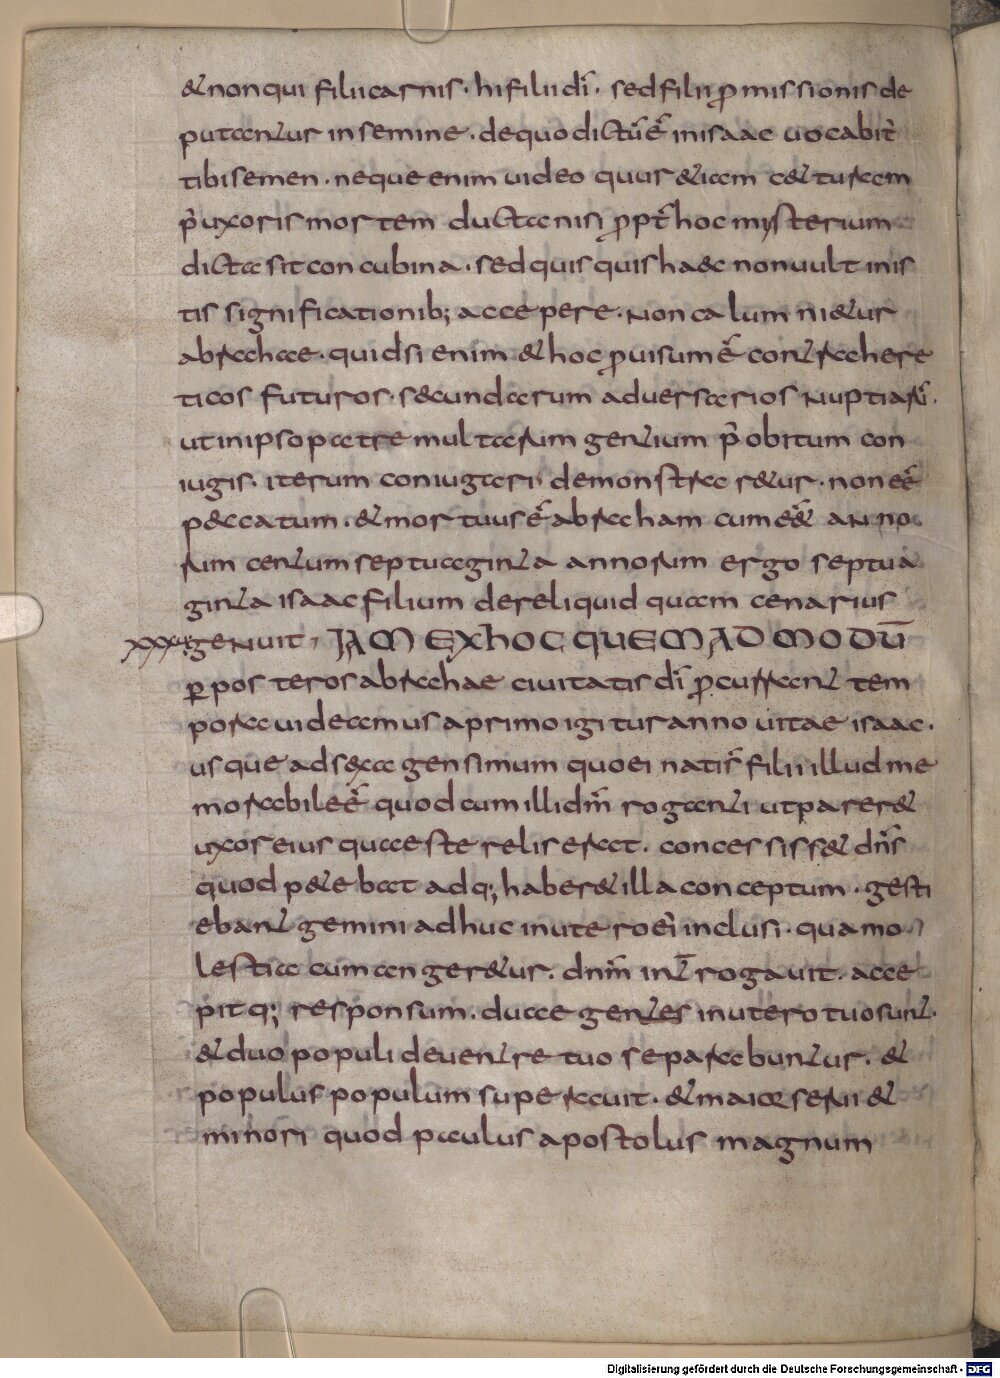 & non qui filii carnis · hi filii dī · sed filii ꝓmissionis de
putantur in semine · de quo dictū ē in isaac uocabit̄
tibi semen · neque enim uideo quur &iam c&turam
p̄ uxoris mortem ducta nisi ꝓpt̄ hoc mysterium
dicta sit concubina · sed quisquis haec non uult in is
tis significationib; accepere · Non calumni&ur
abraham · quid si enim & hoc ꝓuisum ē contra here
ticos futuros · secundarum aduersarios Nuptiarū ·
ut in ipso patre multarum gentium p̄ obitum con
iugis · iterum coniugari demonstrar&ur · non eē
peccatum · & mortuus ē abraham cum eē& anno
rum centum septuaginta annorum ergo septua
ginta isaac filium dereliquid quam cenarius
xxxvi genuit , IAM EX hOC QUEMADMODŪ
ꝑ posteros abrahae ciuitatis dī ꝓcurrant tem
pora uideamus a primo igitur anno uitae isaac ·
usque ad sexagensimum quo ei nati s̄ filii illud me
morabile ē quod cum illi dm̄ roganti ut parer&
uxor eius quae sterelis erat · concessiss& dn̄s
quod petebat adq; haber& illa conceptum · gesti
ebant gemini adhuc in utero ei inclusi · qua mo
lestia cum anger&ur · dnm̄ int̄rogauit · acce
pitq; responsum · duae gentes in utero tuo sunt ·
& duo populi de uentre tuo separabuntur · &
populus populum superauit · & maior serui&
minori quod paulus apostolus magnum
Digitalisierung gefördert durch die Deutsche Forschungsgemeinschaft · DFG